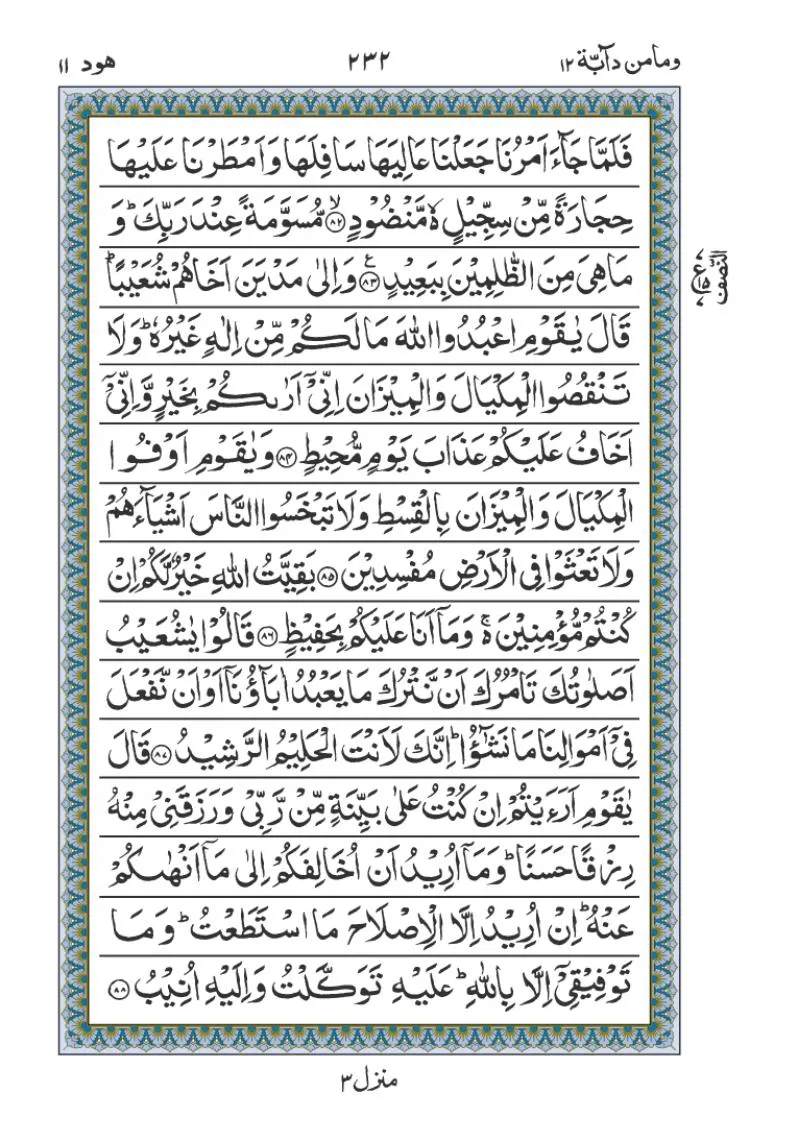 ومامن دآبّة ١٢
٢٣٢
هود ١١
فَلَمَّا جَآءَ اَمْرُنَا جَعَلْنَا عَالِيَهَا سَافِلَهَا وَاَمْطَرْنَا عَلَيْهَا
حِجَارَةً مِّنْ سِجِّيْلٍ ۙ۬ مَّنْضُوْدٍ ۙ﴿٨٢﴾ مُّسَوَّمَةً عِنْدَ رَبِّكَ ؕ وَ
مَا هِيَ مِنَ الظّٰلِمِيْنَ بِبَعِيْدٍ ﴿٨٣﴾ ع وَاِلٰى مَدْيَنَ اَخَاهُمْ شُعَيْبًا ؕ
النّصف
ع ١٥ ٧
قَالَ يٰقَوْمِ اعْبُدُوا اللّٰهَ مَا لَكُمْ مِّنْ اِلٰهٍ غَيْرُهٗ ؕ وَلَا
تَنْقُصُوا الْمِكْيَالَ وَالْمِيْزَانَ اِنِّيْۤ اَرٰىكُمْ بِخَيْرٍ وَّاِنِّيْۤ
اَخَافُ عَلَيْكُمْ عَذَابَ يَوْمٍ مُّحِيْطٍ ﴿٨٤﴾ وَيٰقَوْمِ اَوْفُوا
الْمِكْيَالَ وَالْمِيْزَانَ بِالْقِسْطِ وَلَا تَبْخَسُوا النَّاسَ اَشْيَآءَهُمْ
وَلَا تَعْثَوْا فِي الْاَرْضِ مُفْسِدِيْنَ ﴿٨٥﴾ بَقِيَّتُ اللّٰهِ خَيْرٌ لَّكُمْ اِنْ
كُنْتُمْ مُّؤْمِنِيْنَ ۬ۚ وَمَاۤ اَنَا عَلَيْكُمْ بِحَفِيْظٍ ﴿٨٦﴾ قَالُوْا يٰشُعَيْبُ
اَصَلٰوتُكَ تَاْمُرُكَ اَنْ نَّتْرُكَ مَا يَعْبُدُ اٰبَآؤُنَاۤ اَوْ اَنْ نَّفْعَلَ
فِيْۤ اَمْوَالِنَا مَا نَشٰٓؤُا ؕ اِنَّكَ لَاَنْتَ الْحَلِيْمُ الرَّشِيْدُ ﴿٨٧﴾ قَالَ
يٰقَوْمِ اَرَءَيْتُمْ اِنْ كُنْتُ عَلٰى بَيِّنَةٍ مِّنْ رَّبِّيْ وَرَزَقَنِيْ مِنْهُ
رِزْقًا حَسَنًا ؕ وَمَاۤ اُرِيْدُ اَنْ اُخَالِفَكُمْ اِلٰى مَاۤ اَنْهٰىكُمْ
عَنْهُ ؕ اِنْ اُرِيْدُ اِلَّا الْاِصْلَاحَ مَا اسْتَطَعْتُ ؕ وَمَا
تَوْفِيْقِيْۤ اِلَّا بِاللّٰهِ ؕ عَلَيْهِ تَوَكَّلْتُ وَاِلَيْهِ اُنِيْبُ ﴿٨٨﴾
منزل ٣